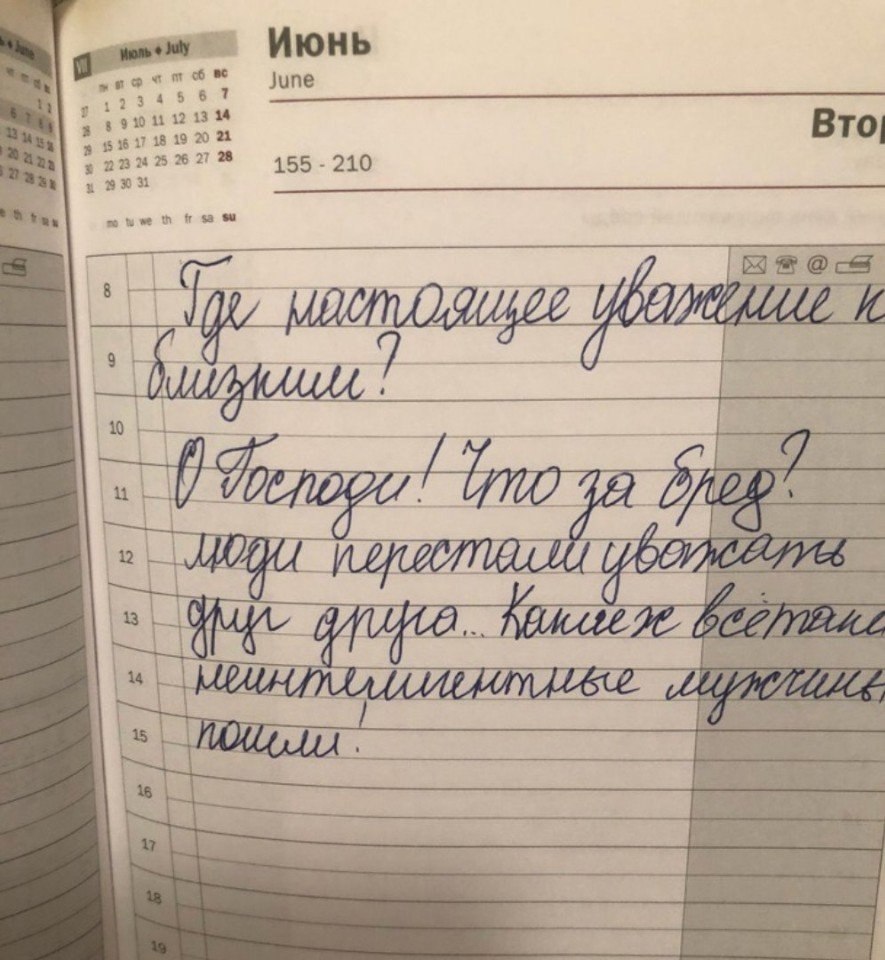 June
VII Июль • July
пн вт ср чт пт сб вс
27 1 2 3 4 5 6 7
28 8 9 10 11 12 13 14
29 15 16 17 18 19 20 21
30 22 23 24 25 26 27 28
31 29 30 31
mo tu we th fr sa su
Июнь
June
Втор
155 - 210
8 Где настоящее уважение к
9 близким?
10
11 О Господи! Что за бред?
12 люди перестали уважать
13 друг друга... Какие ж всётаки
14 неинтелигентные мужчины
15 пошли!
16
17
18
19